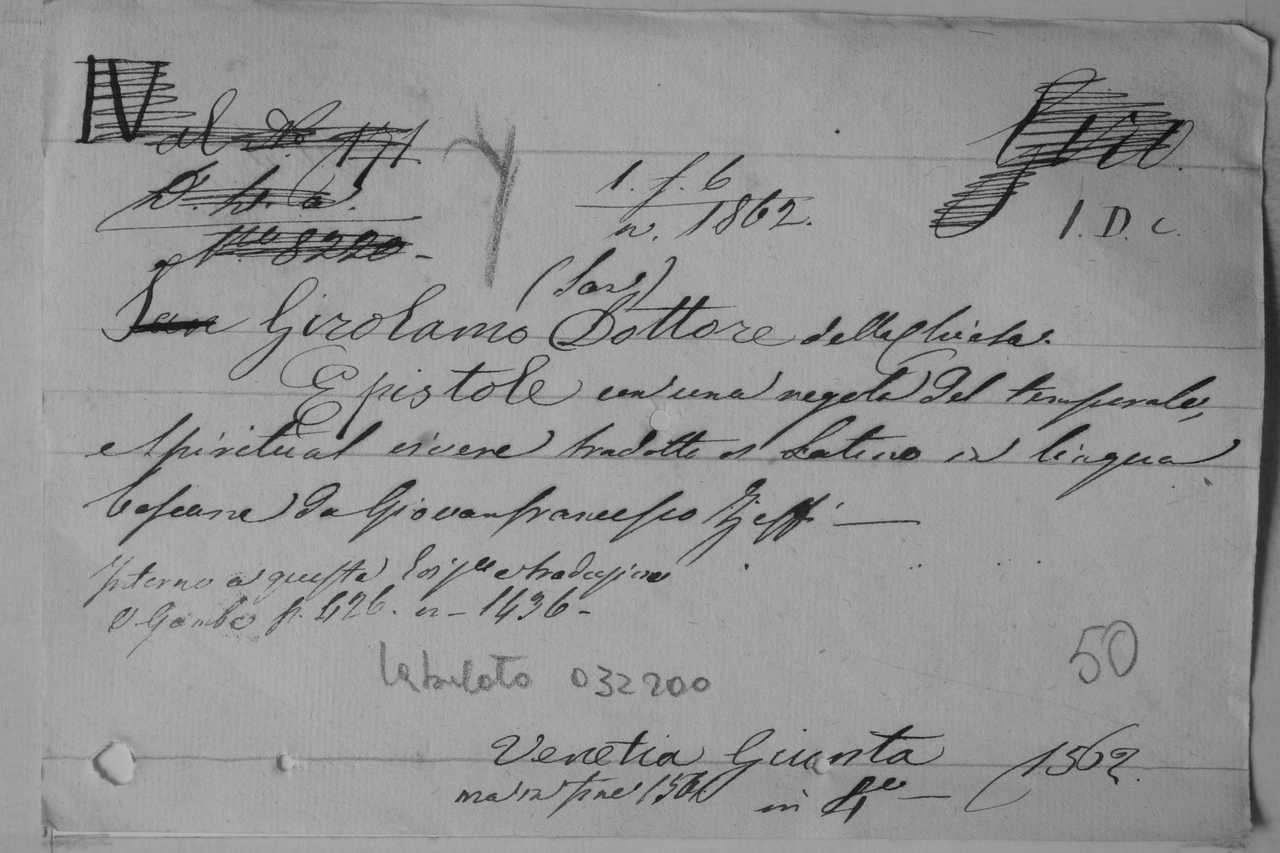 IV
al No 171
1. f. 6
n. 1862.
No 8220
1. D. C.
(San)
San Girolamo Dottore della Chiesa.
Epistole con una regola del temporale,
e spiritual vivere tradotte di Latino in lingua
toscana da Giovanfrancesco Zeffi
Intorno a questa traduzione
V. Gamba p. 426. n. 1436
tabulato 032200
50
Venetia Giunta 1562.
ma in fine 1561 in 4°